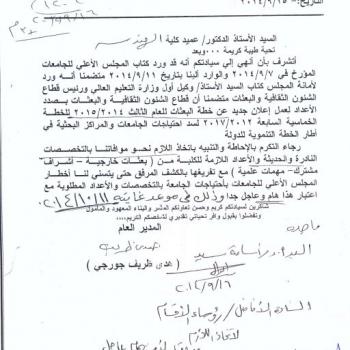 التاريخ:- ١٥/٩/٢٠١٤
السيد الأستاذ الدكتور/ عميد كلية الهندسة
تحية طيبة كريمة ... وبعد
أتشرف بأن أنهي إلي سيادتكم أنه قد ورد كتاب المجلس الأعلي للجامعات
المؤرخ في ٢٠١٤/٩/٧ والوارد ألينا بتاريخ ٢٠١٤/٩/١١ متضمنا أنه ورد
لأمانة المجلس كتاب السيد الأستاذ/ وكيل أول وزارة التعليم العالي ورئيس قطاع
الشئون الثقافية والبعثات متضمنا أن قطاع الشئون الثقافية والبعثات بصدد
الأعداد لعمل إعلان جديد عن خطة البعثات للعام الثالث ٢٠١٥/٢٠١٤ للخطة
الخمسية السابعة ٢٠١٧/٢٠١٢ لسد احتياجات الجامعات والمراكز البحثية في
أطار الخطة التنموية للدولة
رجاء التكرم بالإحاطة والتنبيه باتخاذ اللازم نحو موافاتنا بالتخصصات
النادرة والحديثة والأعداد اللازمة للكلية من ( بعثات خارجية - أشراف
مشترك - مهمات علمية ) مع تفريغها بالكشف المرفق حتي يتسني لنا أخطار
المجلس الأعلي للجامعات بأحتياجات الجامعة بالتخصصات والأعداد المطلوبة مع
اعتبار هذا هام وعاجل جدا وذلك في موعد غايته ٢٠١٤/١٠/١١
شاكرين لسيادتكم كريم وحسن تعاونكم المثمر والبناء المعهود والمأمول
وتفضلوا بقبول وافر تحياتي تقديري لشخصكم الكريم ...
المدير العام
(هدي ظريف جورجي)
السادة الأفاضل/ رؤساء الأقسام